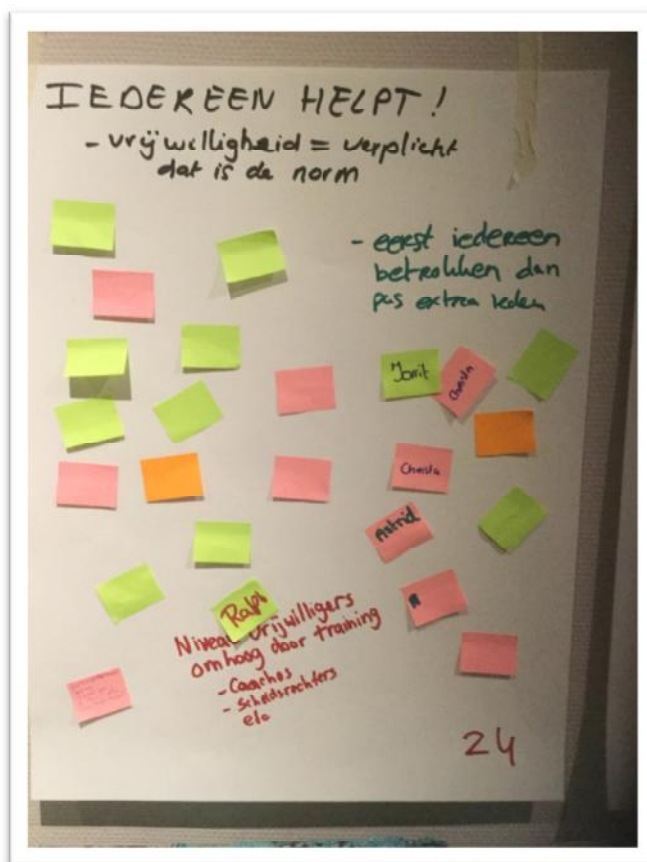 IEDEREEN HELPT!
- vrijwilligheid = verplicht
dat is de norm
- eerst iedereen
betrekken dan
pas extra leden
Jorrit
Christa
Christa
Astrid
Niveau vrijwilligers
omhoog door training
- Coaches
- Scheidsrechters
24